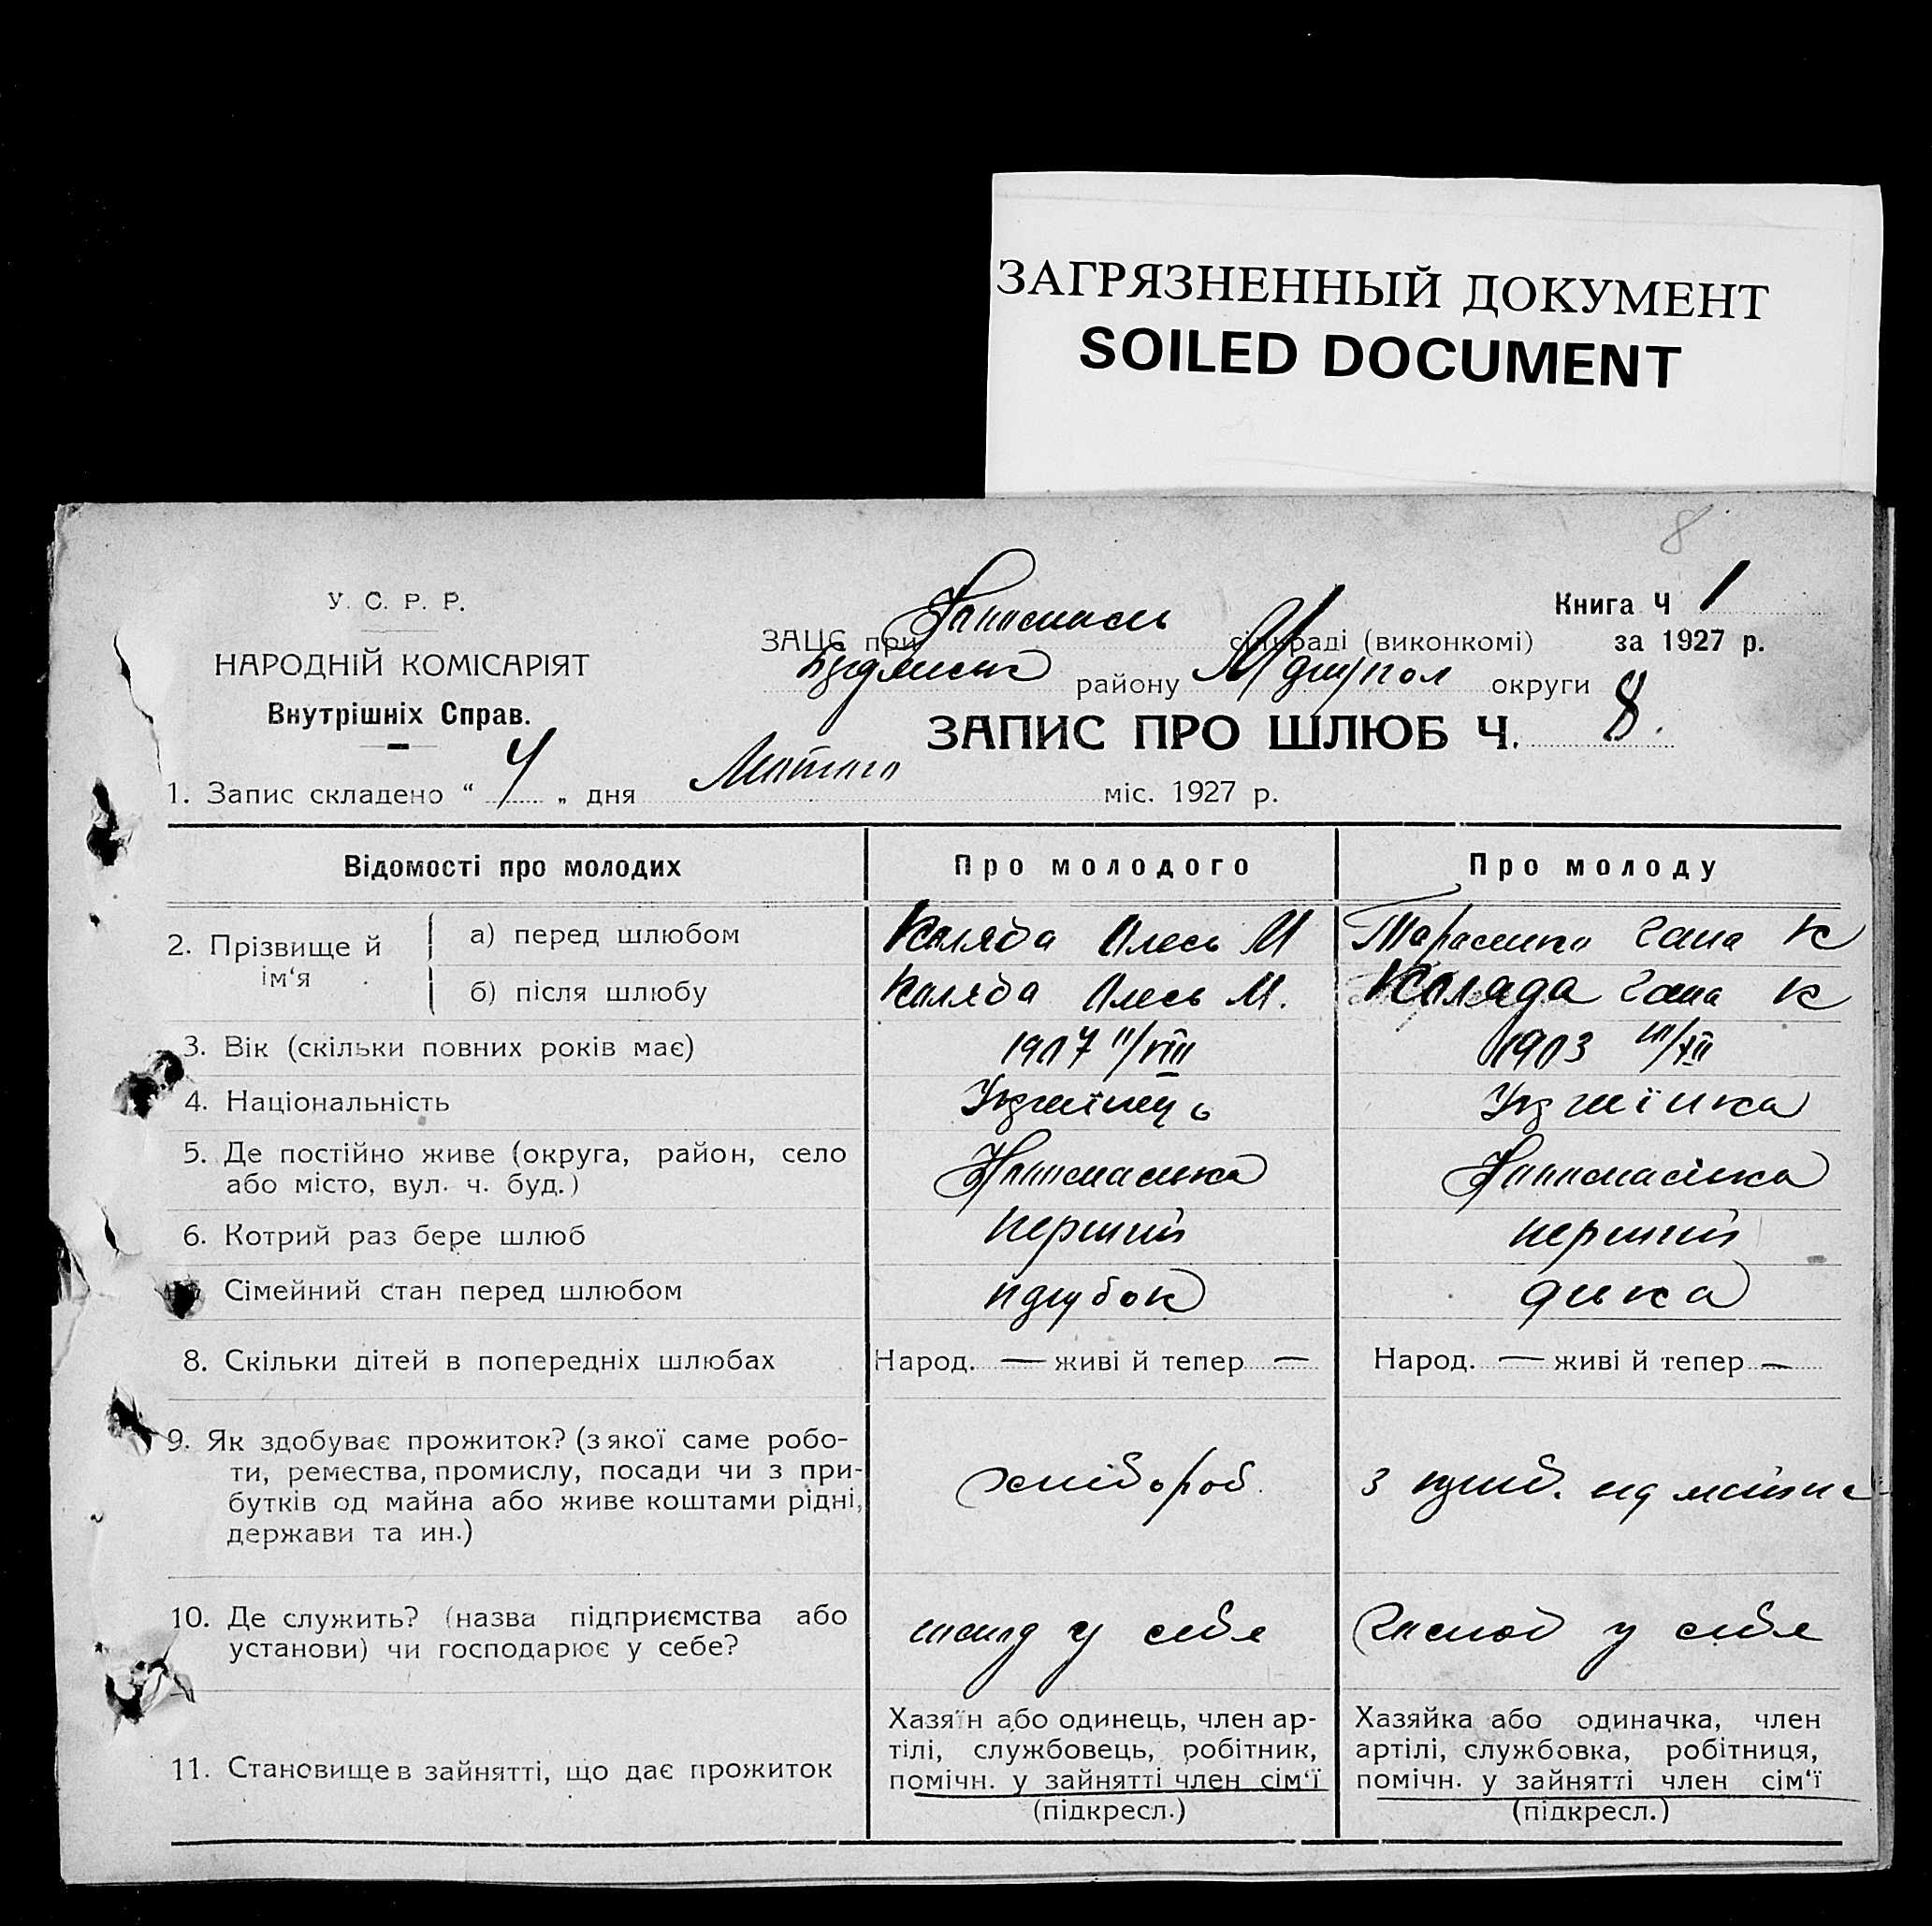 ЗАГРЯЗНЕННЫЙ ДОКУМЕНТ
SOILED DOCUMENT
8
У. С. Р. Р.
НАРОДНІЙ КОМІСАРІЯТ
Внутрішніх Справ.
Книга Ч 1
ЗАЦС при сільраді (виконкомі) за 1927 р.
району округи
ЗАПИС ПРО ШЛЮБ Ч. 8.
1. Запис складено “ 4 „ дня Лютого міс. 1927 р.
Відомості про молодих Про молодого Про молоду
2. Прізвище й ім‘я
а) перед шлюбом Коляда Олесь М Тарасенко Гана К
б) після шлюбу Коляда Олесь М. Коляда Гана К
3. Вік (скільки повних років має) 1907 1903
4. Національність Українець Українка
5. Де постійно живе (округа, район, село
або місто, вул. ч. буд.)
6. Котрий раз бере шлюб перший перший
Сімейний стан перед шлюбом парубок дівка
8. Скільки дітей в попередніх шлюбах Народ. — живі й тепер — Народ. — живі й тепер —
9. Як здобуває прожиток? (з якої саме робо-
ти, ремества, промислу, посади чи з при-
бутків од майна або живе коштами рідні,
держави та ин.)
хлібороб. з приб. від майна
10. Де служить? (назва підприємства або
установи) чи господарює у себе?
у себе Господ у себе
11. Становище в зайнятті, що дає прожиток
Хазяїн або одинець, член ар-
тілі, службовець, робітник,
помічн. у зайнятті член сім‘ї
(підкресл.)
Хазяйка або одиначка, член
артілі, службовка, робітниця,
помічн. у зайнятті член сім‘ї
(підкресл.)